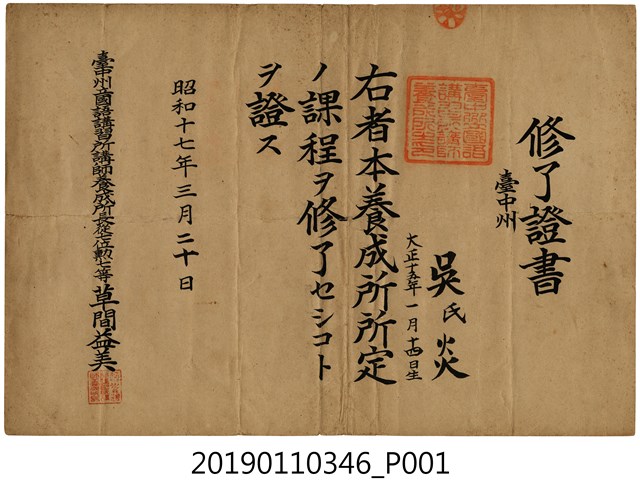 修了證書
臺中州
吳氏焱
大正十五年一月十四日生
右者本養成所所定
ノ課程ヲ修了セシコト
ヲ證ス
昭和十七年三月二十日
臺中州立國語講習所講師養成所長從七位勲七等草間益美
20190110346_P001